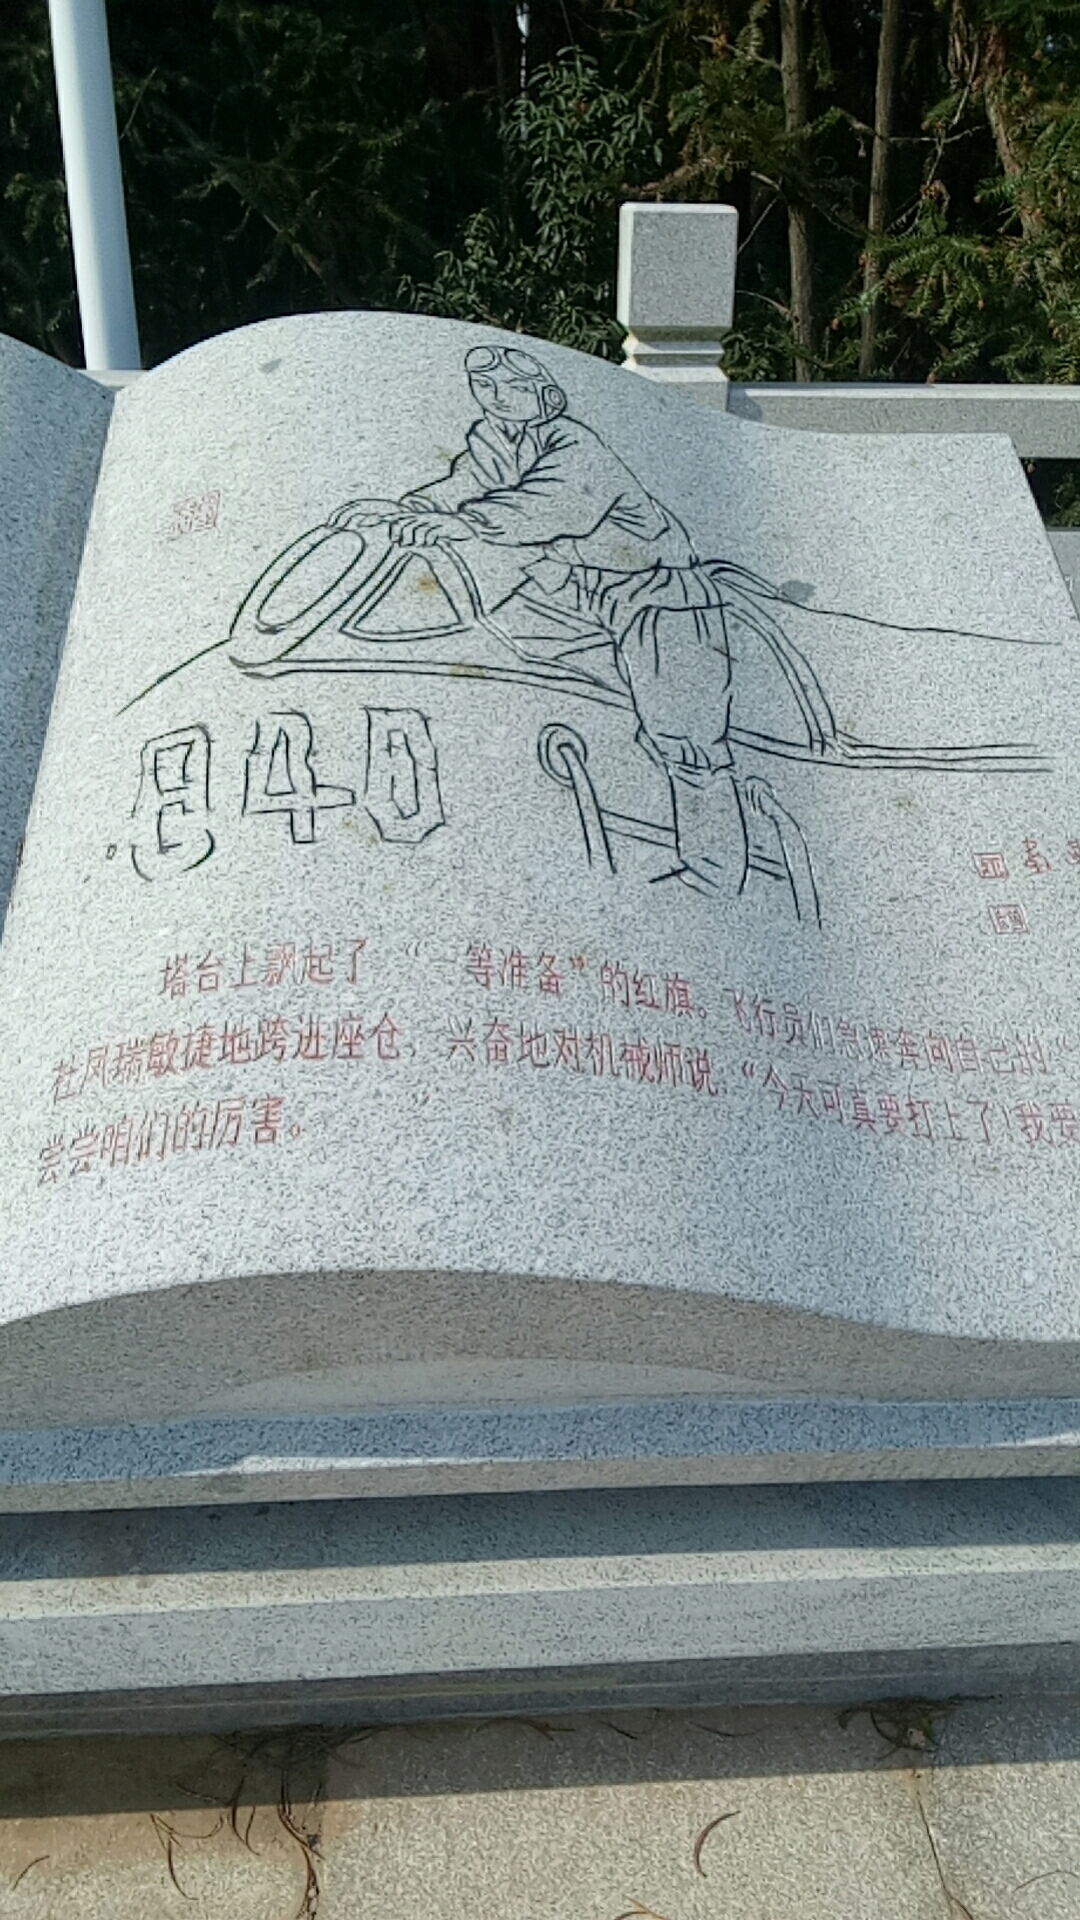 840
塔台上飘起了“一等准备”的红旗。飞行员们急速奔向自己的“
杜凤瑞敏捷地跨进座仓，兴奋地对机械师说“今天可真要打上了！我要
尝尝咱们的厉害。